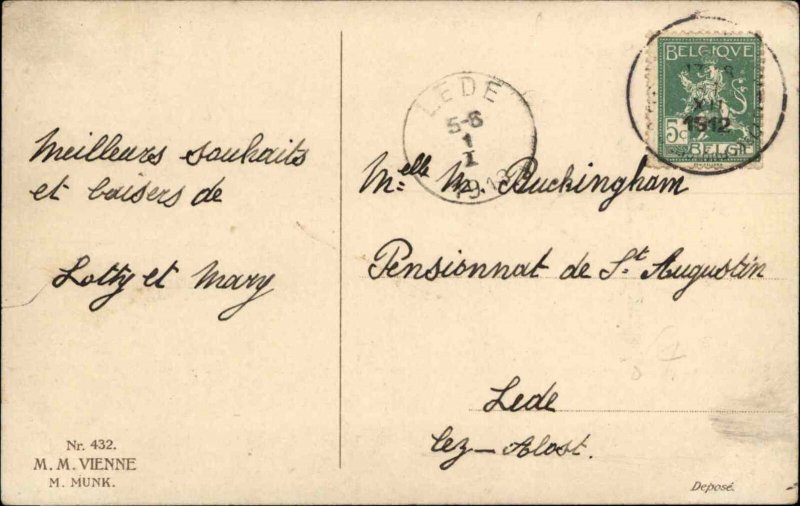 Meilleurs souhaits
et baisers de
Lotty et Mary
Nr. 432.
M. M. VIENNE
M. MUNK.
LEDE
5-6
1
I
1913
BELGIQUE
XII
1912
5c
BELGIË
Melle M. Buckingham
Pensionnat de St. Augustin
Lede
lez-Alost.
Deposé.